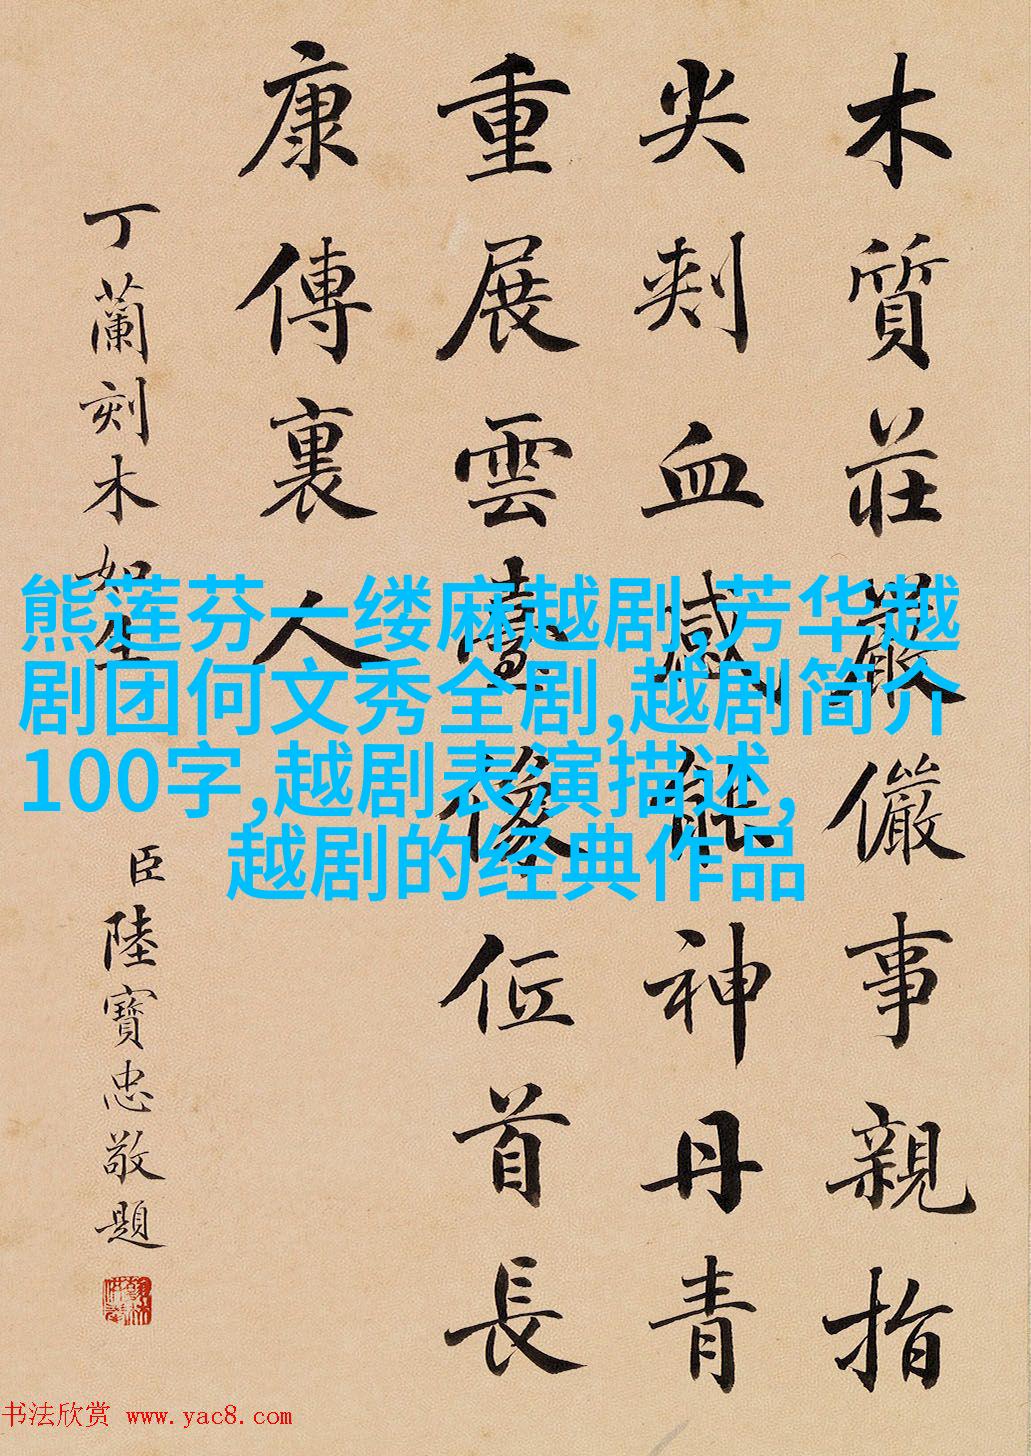 木質莊嚴儼事親指
尖刾血感能神丹青
重展雲臺像位首長
康傳裏人
丁蘭刻木如生
臣陸寶忠敬題
熊莲芬一缕麻越剧,芳华越
剧团何文秀全剧,越剧简介
100字,越剧表演描述,
越剧的经典作品
书法欣赏 www.yac8.com